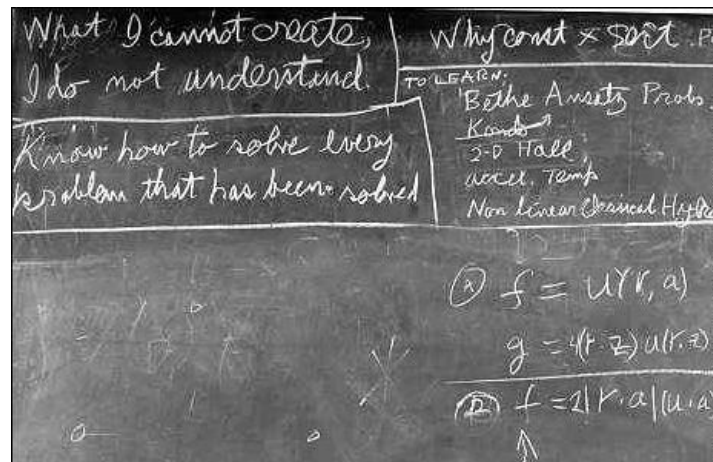 What I cannot create,
I do not understand.
Know how to solve every
problem that has been solved
Why const × sort . P
TO LEARN:
Bethe Ansatz Probs.
Kondo
2-D Hall
accel. Temp
Non Linear Classical Hydro
f = U(r, a)
g = 4(r·z) u(r·z)
f = 2|r·a|(u·a)